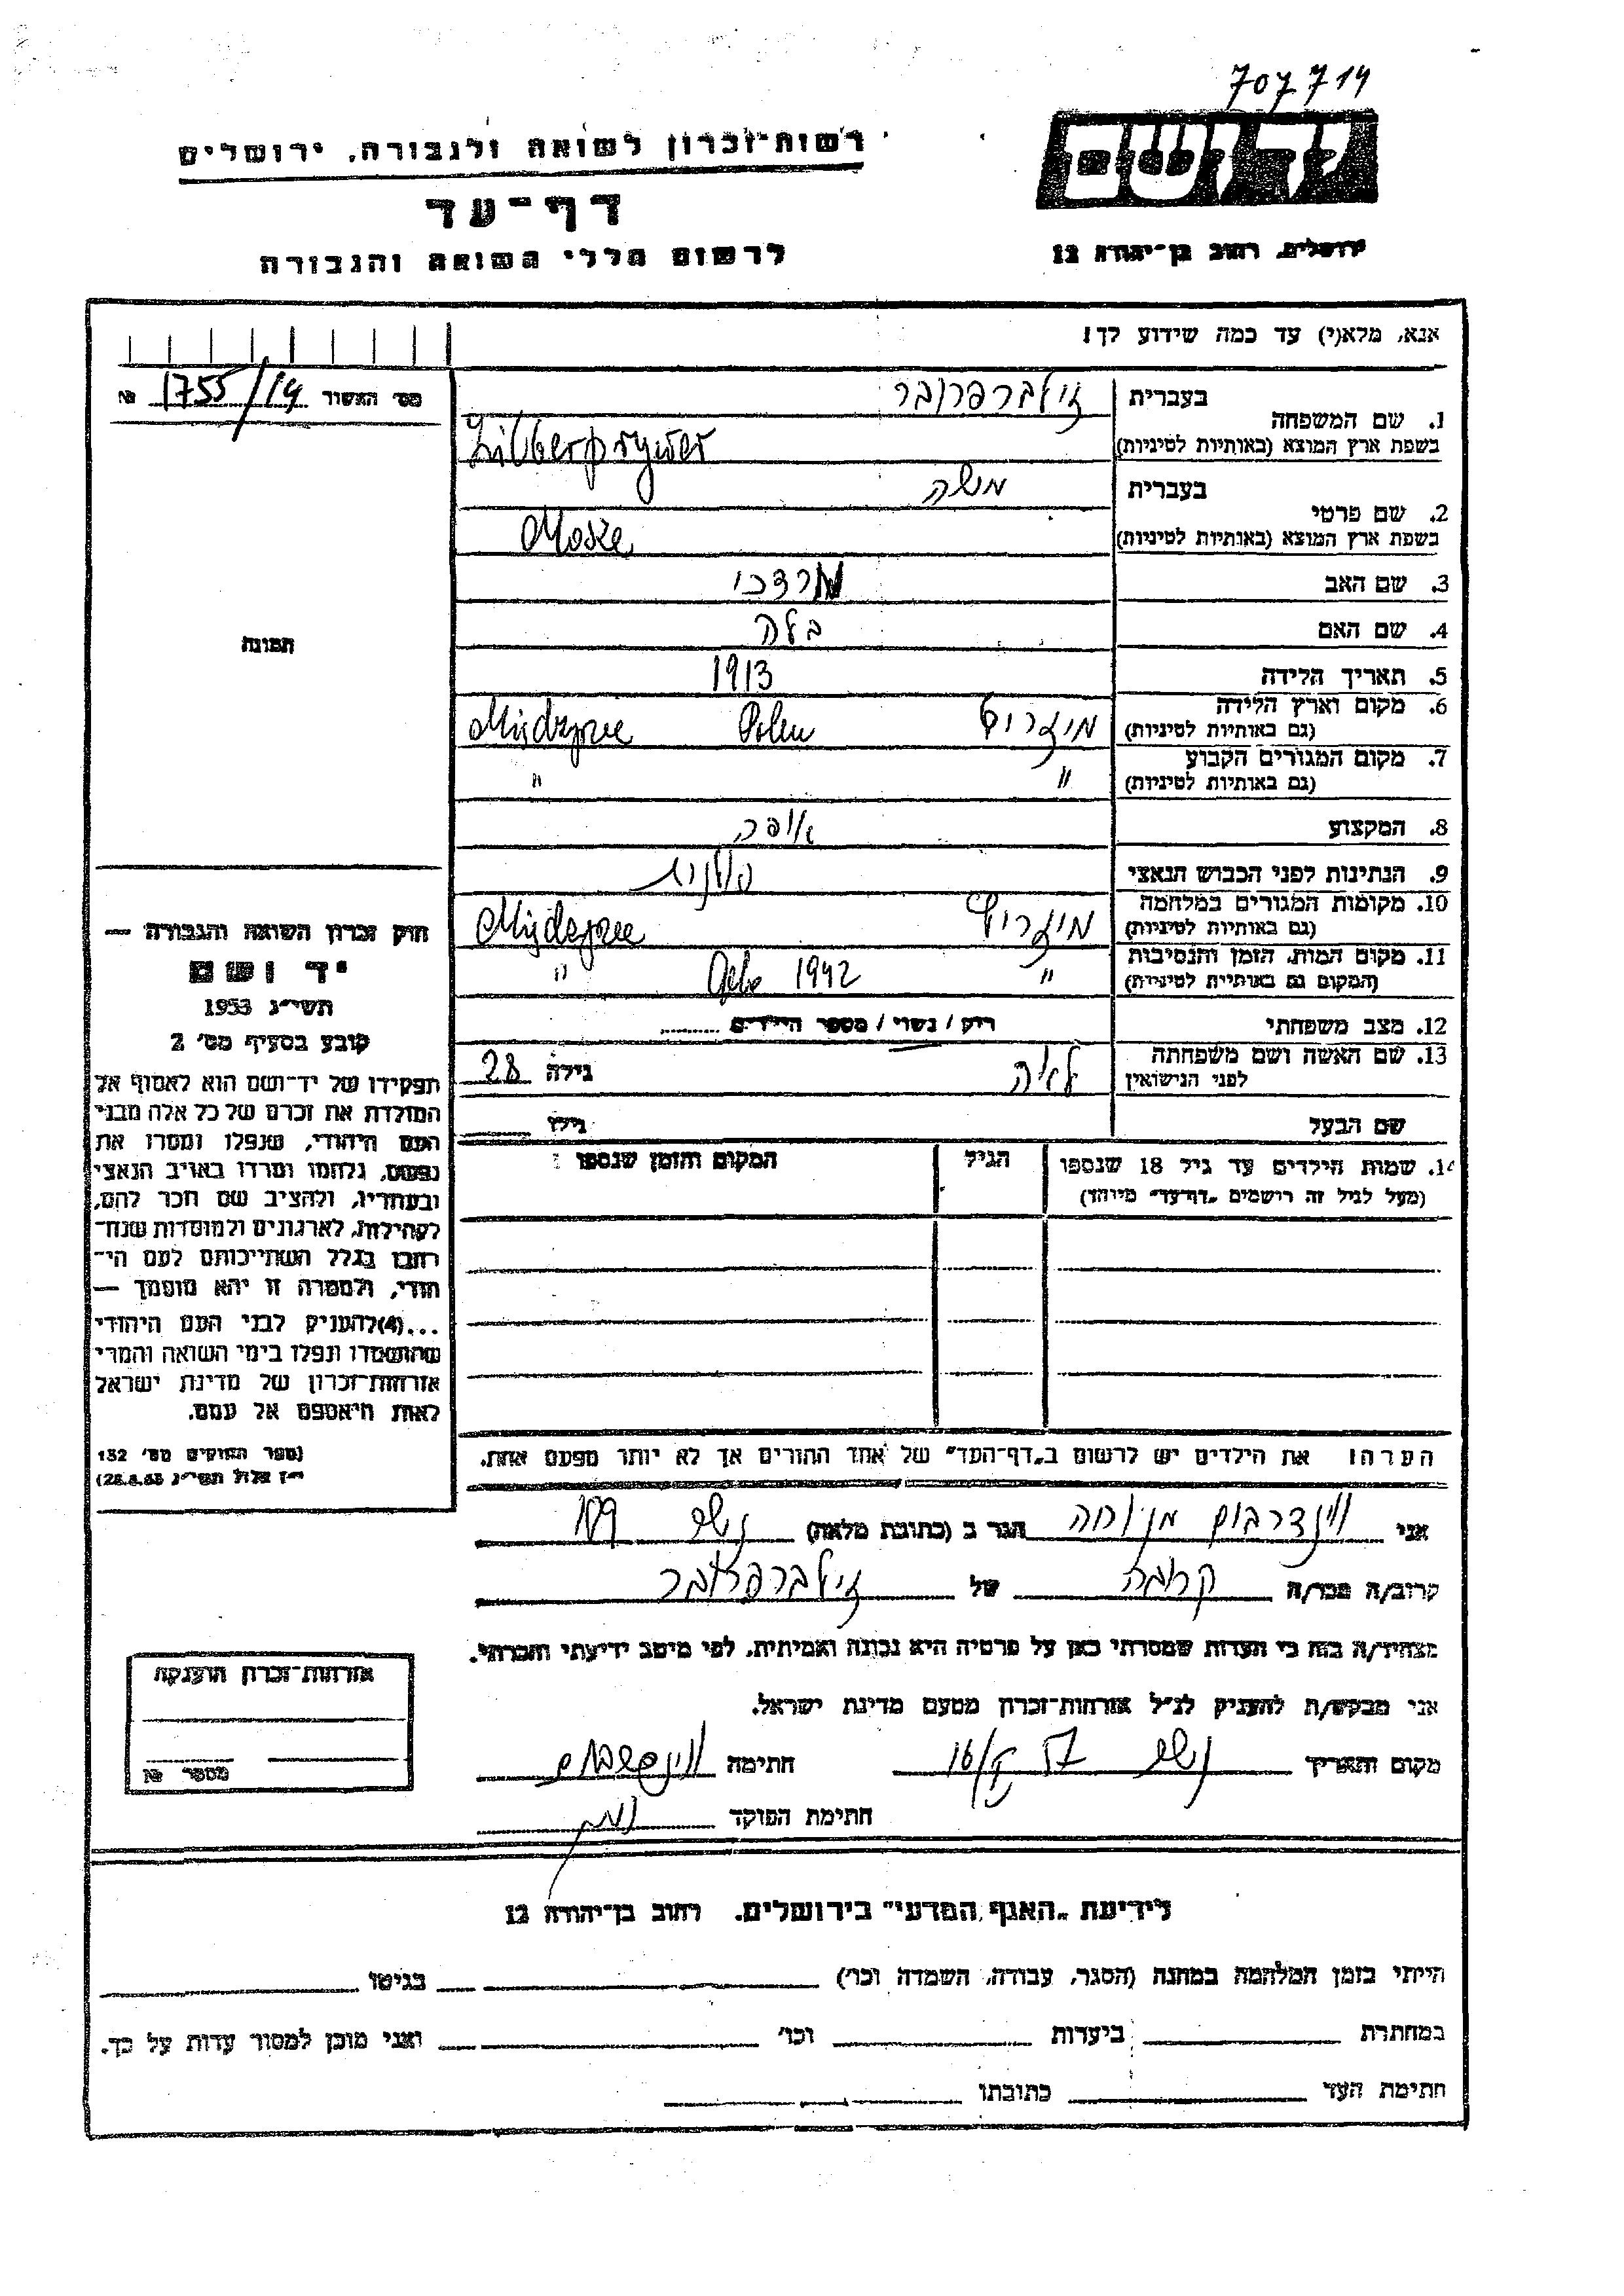 707714
רשות-זכרון לשואה ולגבורה, ירושלים
יד ושם
דף-עד
ירושלים, רחוב בן-יהודה 12
לרשום חללי השואה והגבורה
אנא, מלא(י) עד כמה שידוע לך!
מס׳ האשור 1755/14 №
1. שם המשפחה
בעברית זילברפרובר
בשפת ארץ המוצא (באותיות לטיניות)
2. שם פרטי
בעברית משה
בשפת ארץ המוצא (באותיות לטיניות) Mosze
3. שם האב מרדכי
4. שם האם בלה
5. תאריך הלידה 1913
6. מקום וארץ הלידה
(גם באותיות לטיניות) מיזריץ Polen
7. מקום המגורים הקבוע
(גם באותיות לטיניות) " "
8. המקצוע אופה
9. הנתינות לפני הכבוש הנאצי פולנית
10. מקומות המגורים במלחמה
(גם באותיות לטיניות) מיזריץ
11. מקום המות, הזמן והנסיבות
(המקום גם באותיות לטיניות) " 1942 "
12. מצב משפחתי רוק / נשוי / מספר הילדים
13. שם האשה ושם משפחתה
לפני הנישואין לאה גילה 28
שם הבעל גילו
14. שמות הילדים עד גיל 18 שנספו הגיל המקום והזמן שנספו
(מעל לגיל זה רישמים „דף-עד" מיוחד)
תמונה
חוק זכרון השואה והגבורה —
יד ושם
תשי״ג 1953
קובע בסעיף מס׳ 2
תפקידו של יד-ושם הוא לאסוף אל
המולדת את זכרם של כל אלה מבני
העם היהודי, שנפלו ומסרו את
נפשם, נלחמו ומרדו באויב הנאצי
ובעוזריו, ולהציב שם וזכר להם,
לקהילות, לארגונים ולמוסדות שנח-
רבו בגלל השתייכותם לעם הי-
הודי, ולמטרה זו יהא מוסמך —
...(4)להעניק לבני העם היהודי
שהושמדו ונפלו בימי השואה והמרי
אזרחות-זכרון של מדינת ישראל
לאות היאספם אל עמם.
(ספר החוקים מס׳ 132
י״ז אלול תשי״ג 28.8.53)
הערה: את הילדים יש לרשום ב„דף-העד" של אחד ההורים אך לא יותר מפעם אחת.
אני הגר ב (כתובת מלאה) נשר 109
קרוב/ה מכר/ה קרובה של זילברפרובר
מצהיר/ה בזה כי העדות שמסרתי כאן על פרטיה היא נכונה ואמיתית, לפי מיטב ידיעתי והכרתי.
אני מבקש/ת להעניק לנ״ל אזרחות-זכרון מטעם מדינת ישראל.
מקום ותאריך נשר חתימה
חתימת הפוקד
אזרחות-זכרון הוענקה
מספר №
לידיעת „האגף המדעי" בירושלים. רחוב בן-יהודה 12
הייתי בזמן המלחמה במחנה (הסגר, עבודה, השמדה וכו׳) בגיטו
במחתרת ביערות וכו׳ ואני מוכן למסור עדות על כך.
חתימת העד כתובתו